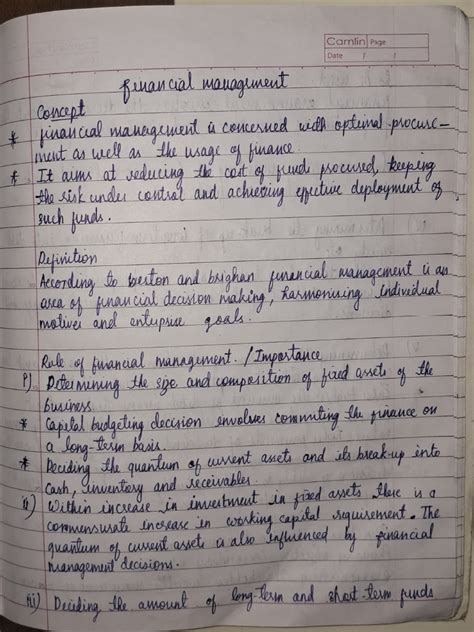 Camlin Page
Date / /
Financial management
Concept
* Financial management is concerned with optimal procure-
ment as well as the usage of finance.
* It aims at reducing the cost of funds procured, keeping
the risk under control and achieving effective deployment of
such funds.
Definition
According to weston and brighan financial management is an
area of financial decision making, harmonising individual
motives and enterprise goals.
Role of financial management. / Importance
i) Determining the size and composition of fixed assets of the
business
* Capital budgeting decision involves commiting the finance on
a long-term basis.
* Deciding the quantum of current assets and its break-up into
Cash, inventory and receivables.
ii) Within increase in investment in fixed assets there is a
commensurate increase in working capital requirement. The
quantum of current assets is also influenced by financial
management decisions.
iii) Deciding the amount of long-term and short-term funds